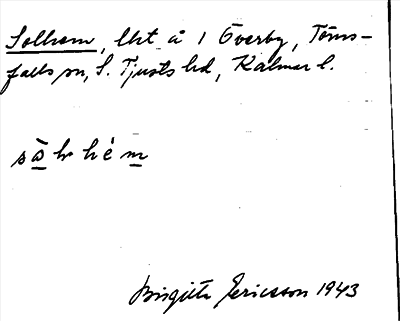 Solhem, lht å 1 Överby, Törns-
falls sn, S. Tjusts hd, Kalmar l.
sòlhém
Birgitta Ericsson 1943